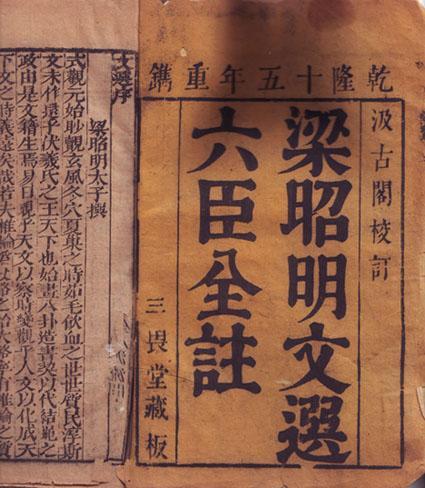 乾隆十五年重鐫
汲古閣校訂
梁昭明文選
六臣全註
三畏堂藏板
文選序
梁昭明太子撰
式觀元始眇覿玄風冬穴夏巢之時茹毛飲血之世世質民淳斯
文未作逮乎伏羲氏之王天下也始畫八卦造書契以代結繩之
政由是文籍生焉易曰觀乎天文以察時變觀乎人文以化成天
下文之時義遠矣哉若夫椎輪為大輅之始大輅寧有椎輪之質